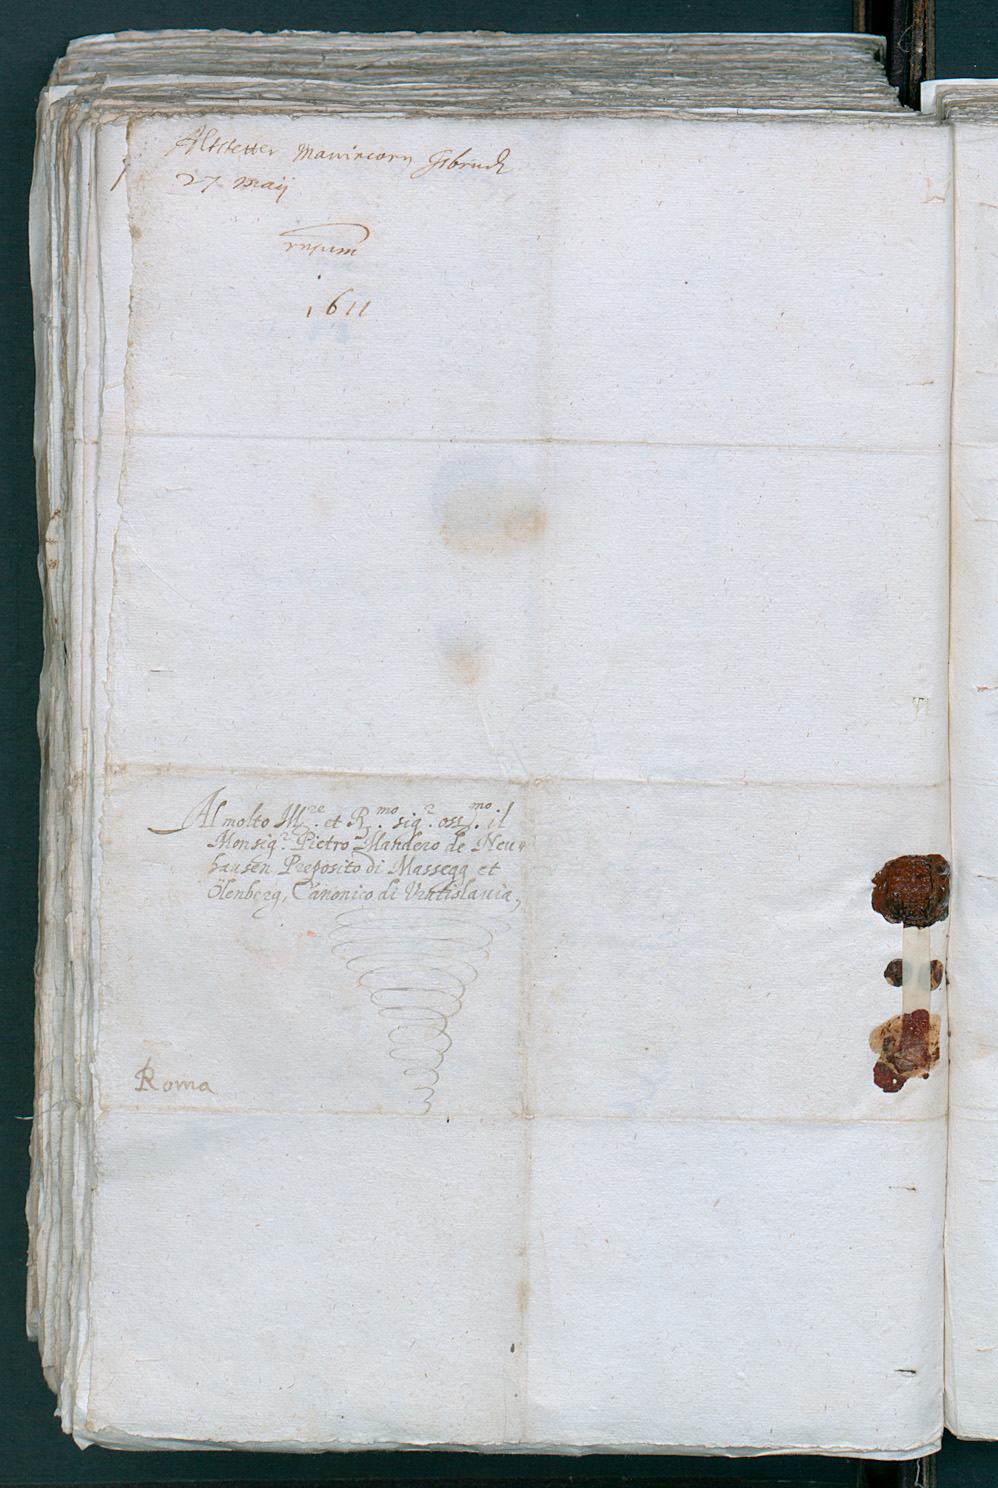 Altstetter Manincorn Isbruck
27 maij
rnsum
1611
Al molto M.re et R.mo sig.r oss.mo il
Monsig.r Pietro Mandero de Neu=
hausen Preposito di Massegg et
Ölenberg, Canonico di Vratislauia,
Roma